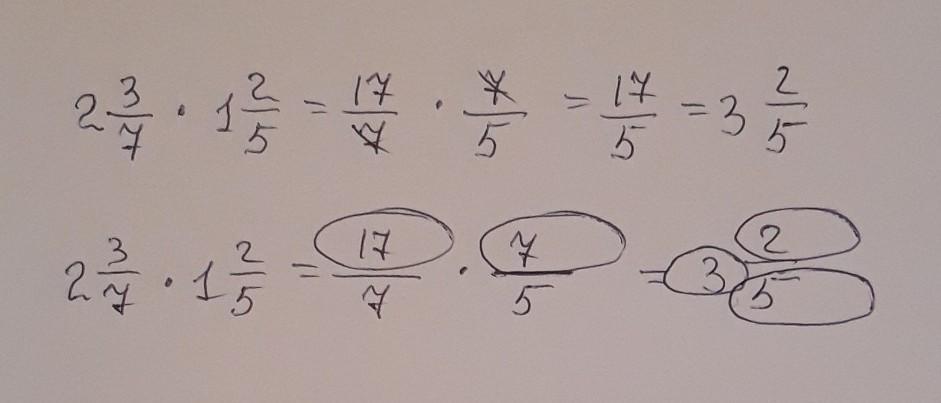 2 3/7 · 1 2/5 = 17/7 · 7/5 = 17/5 = 3 2/5
2 3/7 · 1 2/5 = 17/7 · 7/5 = 3 2/5